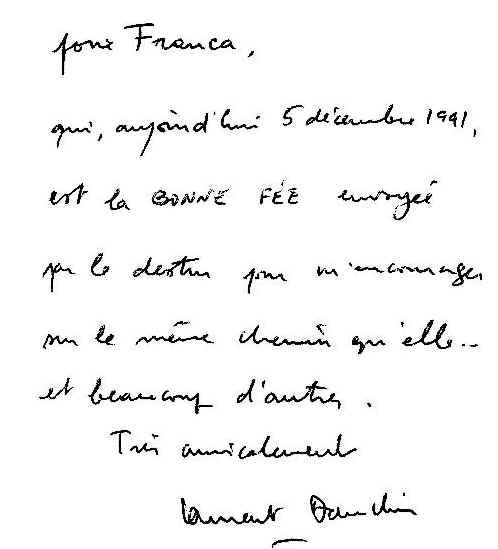 pour Franca,
qui, aujourd'hui 5 décembre 1991,
est la BONNE FÉE envoyée
par le destin pour m'encourager
sur le même chemin qu'elle...
et beaucoup d'autres.
Très amicalement
Laurent Danchin